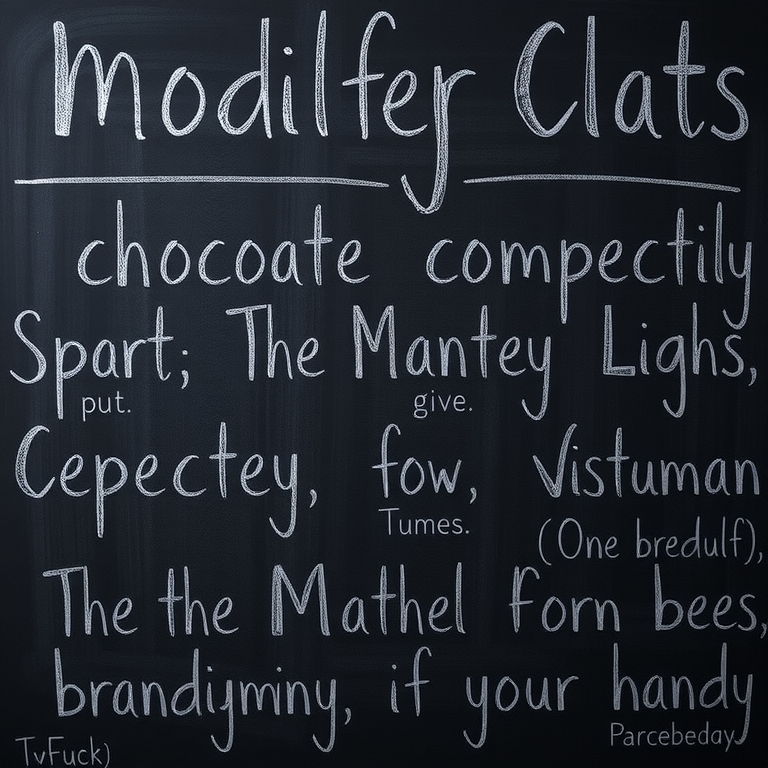 Modilfej Clats
chocoate compectily
Spart; The Mantey Lighs,
put. give.
Cepectey, fow, Vistuman
Tumes. (One bredulf),
The the Mathel forn bees,
brandijminy, if your handy
TvFuck) Parcebeday